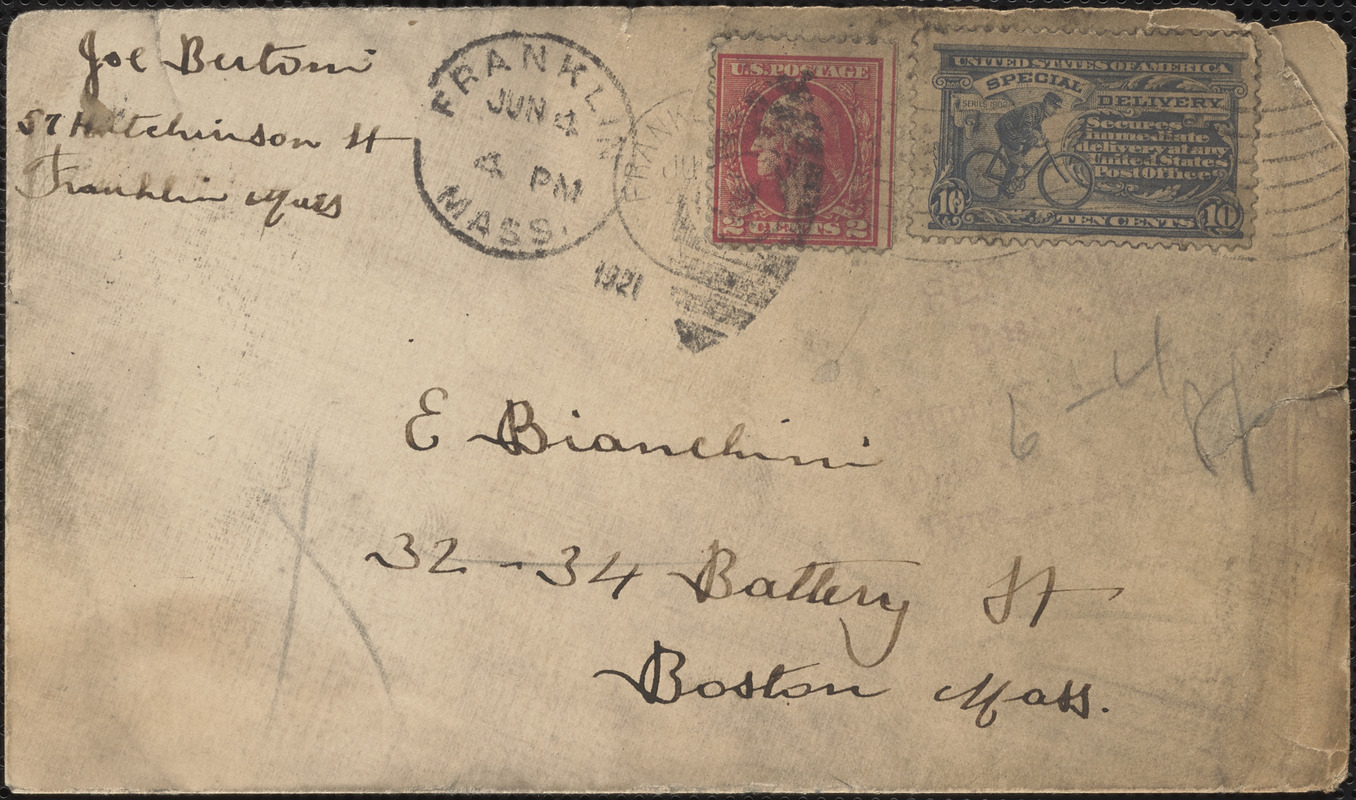 Joe Bertoni
57 Hutchinson St
Franklin Mass
FRANKLIN
JUN 4
4 PM
MASS.
1921
U.S. POSTAGE
2 CENTS 2
UNITED STATES OF AMERICA
SPECIAL
SERIES 1902
DELIVERY
Secures
immediate
delivery at any
United States
Post Office
10 TEN CENTS 10
FRANK
JU
6-4
E Bianchini
32-34 Battery St
Boston Mass.